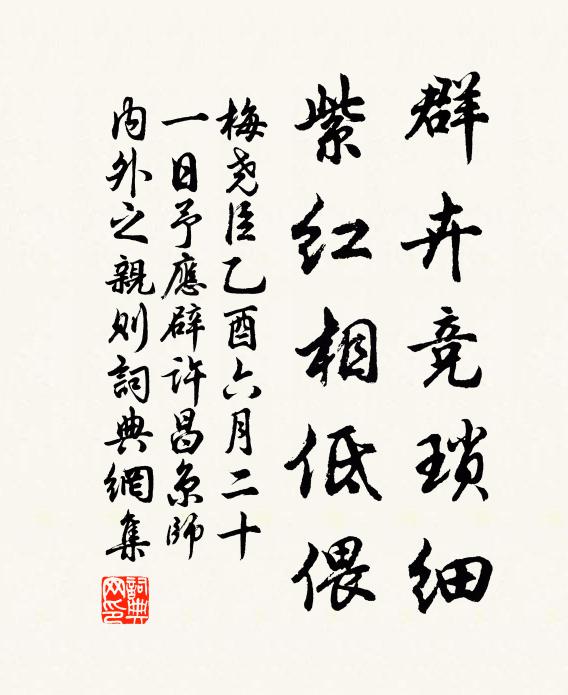 群卉竞琐细
紫红相低偎
梅尧臣乙酉六月二十
一日予應辟许昌京師
内外之親则詞典網集
詞典網印